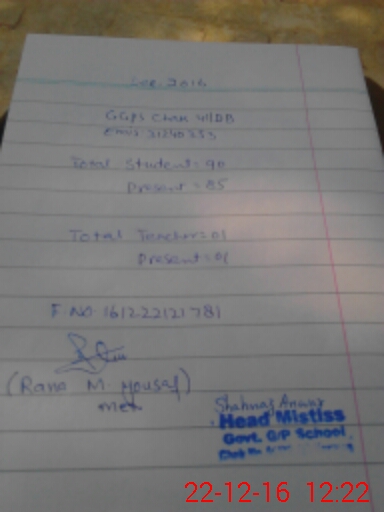 Dec. 2016
GGPS Chak 41/DB
EMIS 31240353
Total Student = 90
Present = 85
Total Teacher = 01
Present = 01
F. NO 161222121781
(Rana M. Yousaf)
MEA
Shahnaz Anwar
Head Mistiss
Govt. G/P School
22-12-16 12:22